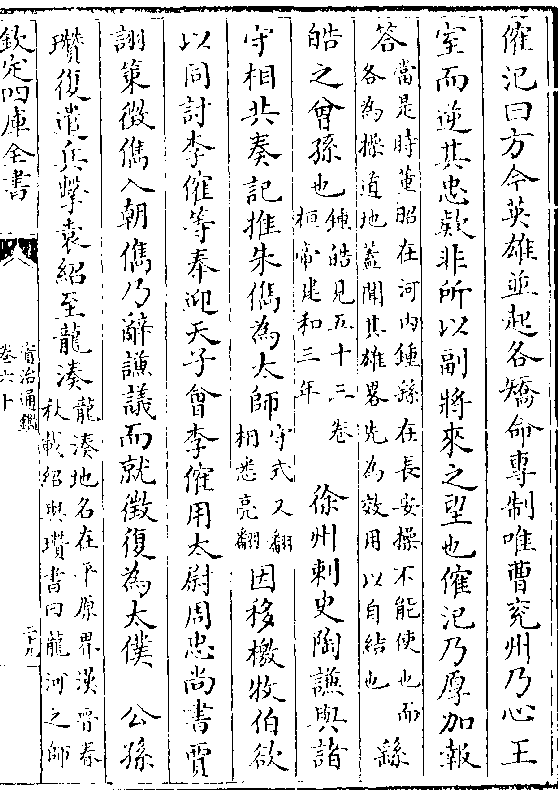 傕汜曰方今英雄並起各矯命專制唯曹兗州乃心王
室而逆其忠款非所以副將來之望也傕汜乃厚加報
答當是時董昭在河内鍾繇在長安操不能使也而
各為操道地蓋聞其雄畧先為效用以自結也繇
皓之曾孫也鍾皓見五十三卷
桓帝建和三年徐州刺史陶謙與諸
守相共奏記推朱儁為太師守式又翻
相悉亮翻因移檄牧伯欲
以同討李傕等奉迎天子會李傕用太尉周忠尚書賈
詡策徵儁入朝儁乃辭謙議而就徵復為太僕 公孫
瓚復遣兵擊袁紹至龍湊龍湊地名在平原界漢晉春
秋載紹與瓚書曰龍河之師
欽定四庫全書
資治通鑑
卷六十